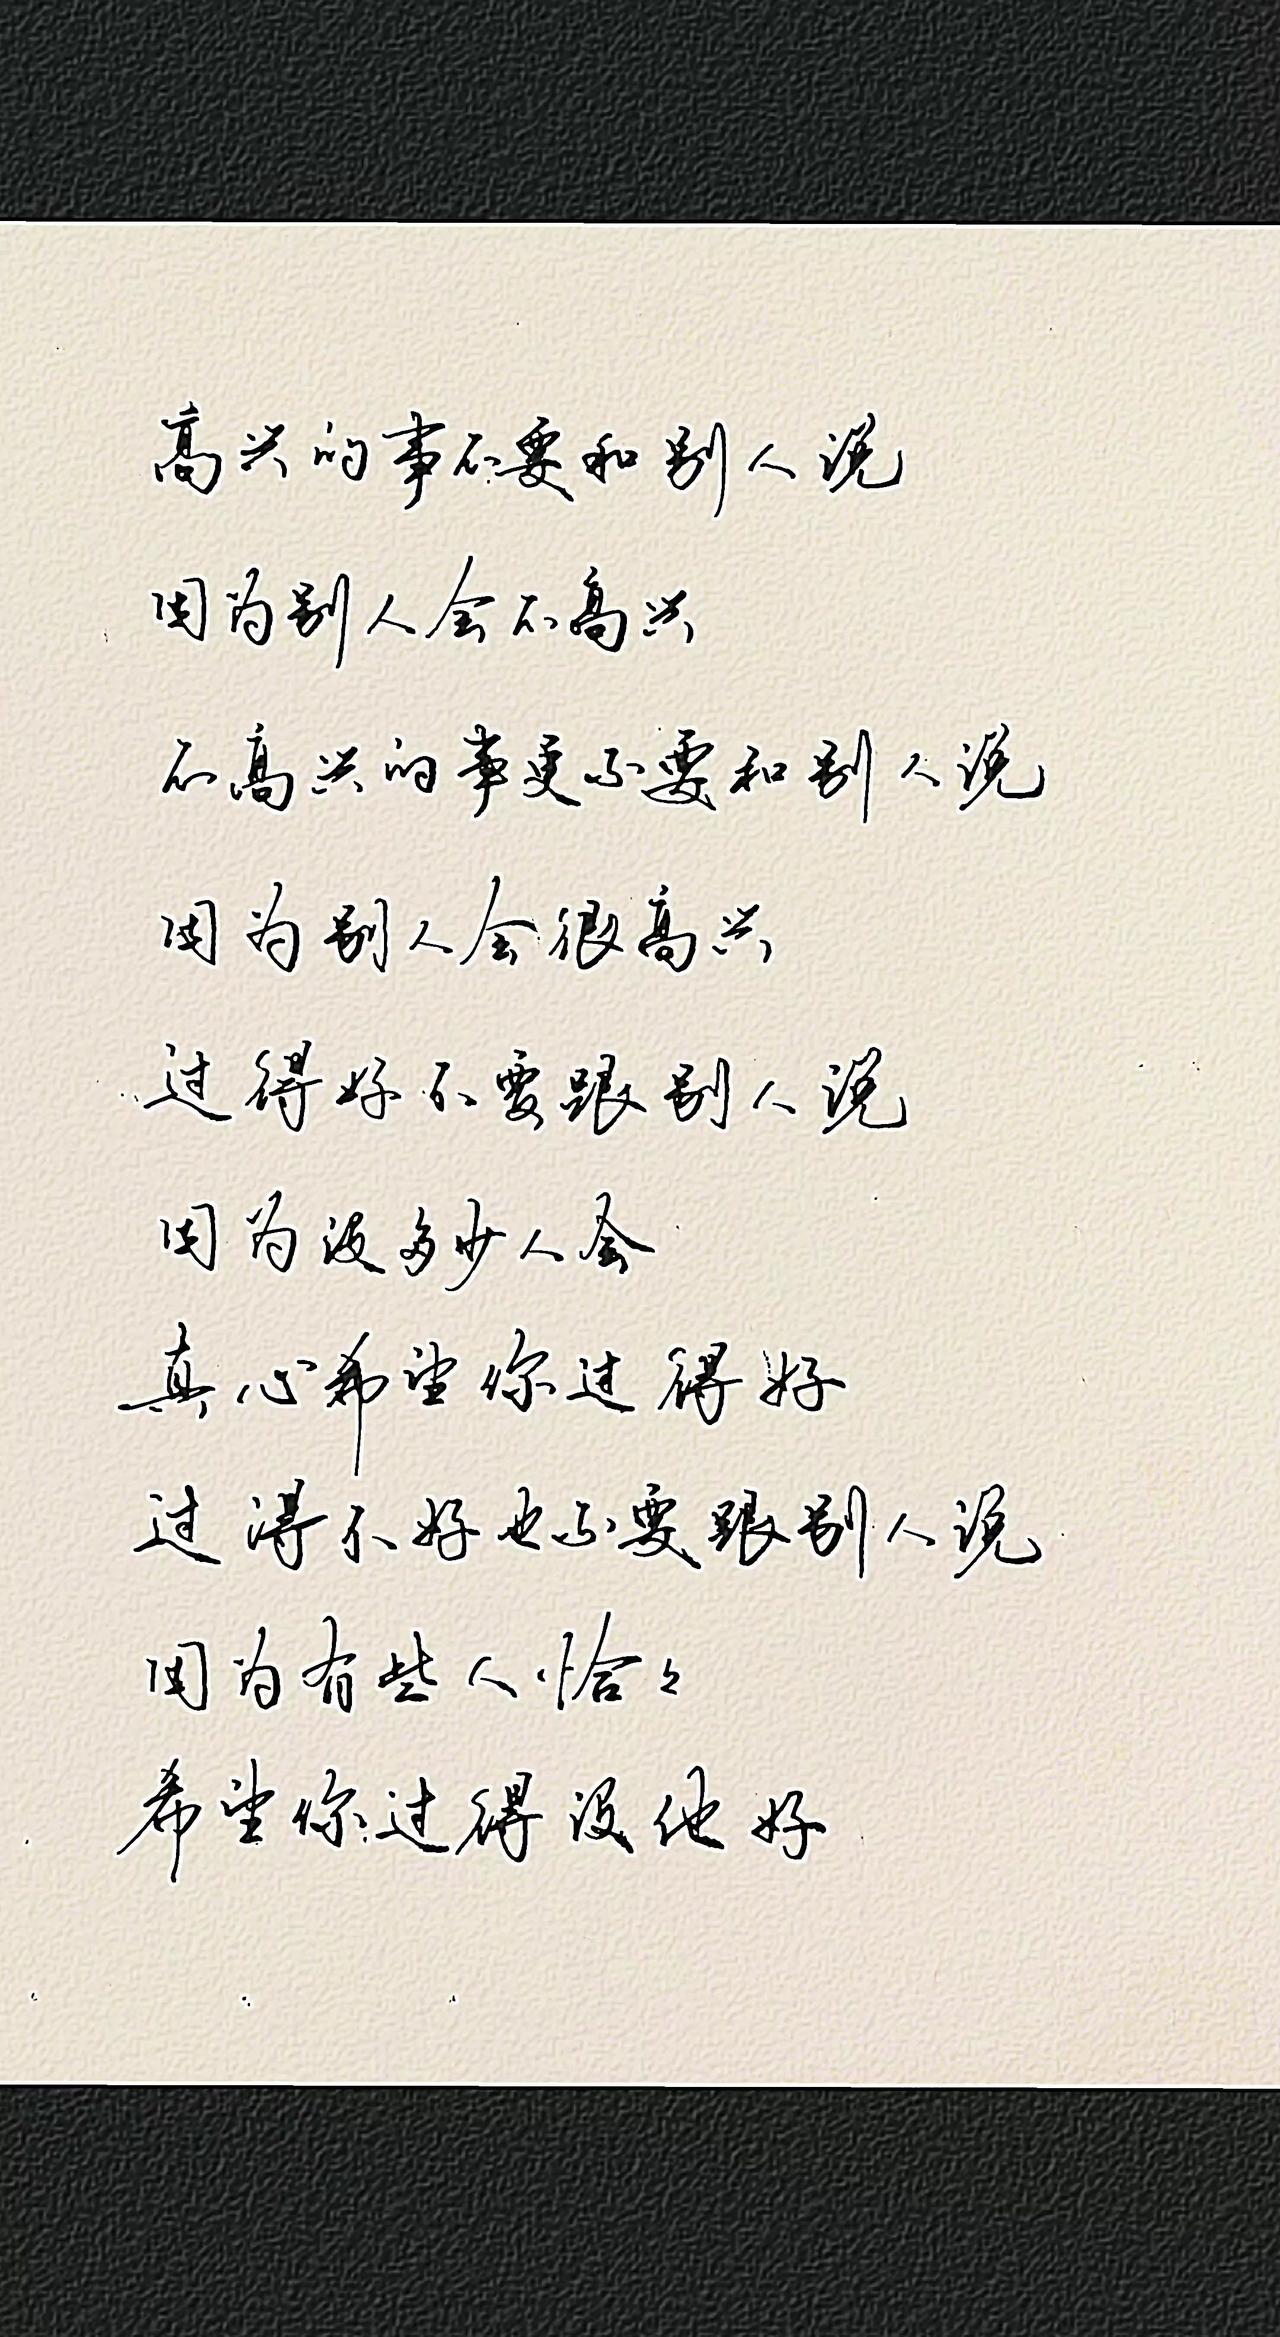 高兴的事不要和别人说
因为别人会不高兴
不高兴的事更不要和别人说
因为别人会很高兴
过得好不要跟别人说
因为没多少人会
真心希望你过得好
过得不好也不要跟别人说
因为有些人恰々
希望你过得没他好